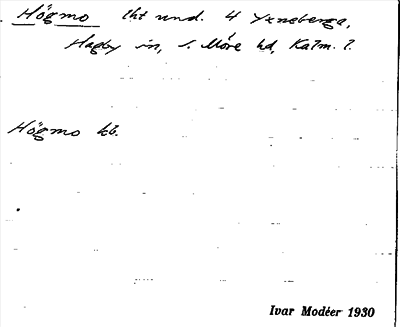 Högmo lht und. 4 Yxneberga,
Hagby sn, S. Möre hd, Kalm. l.
Högmo kb.
Ivar Modéer 1930